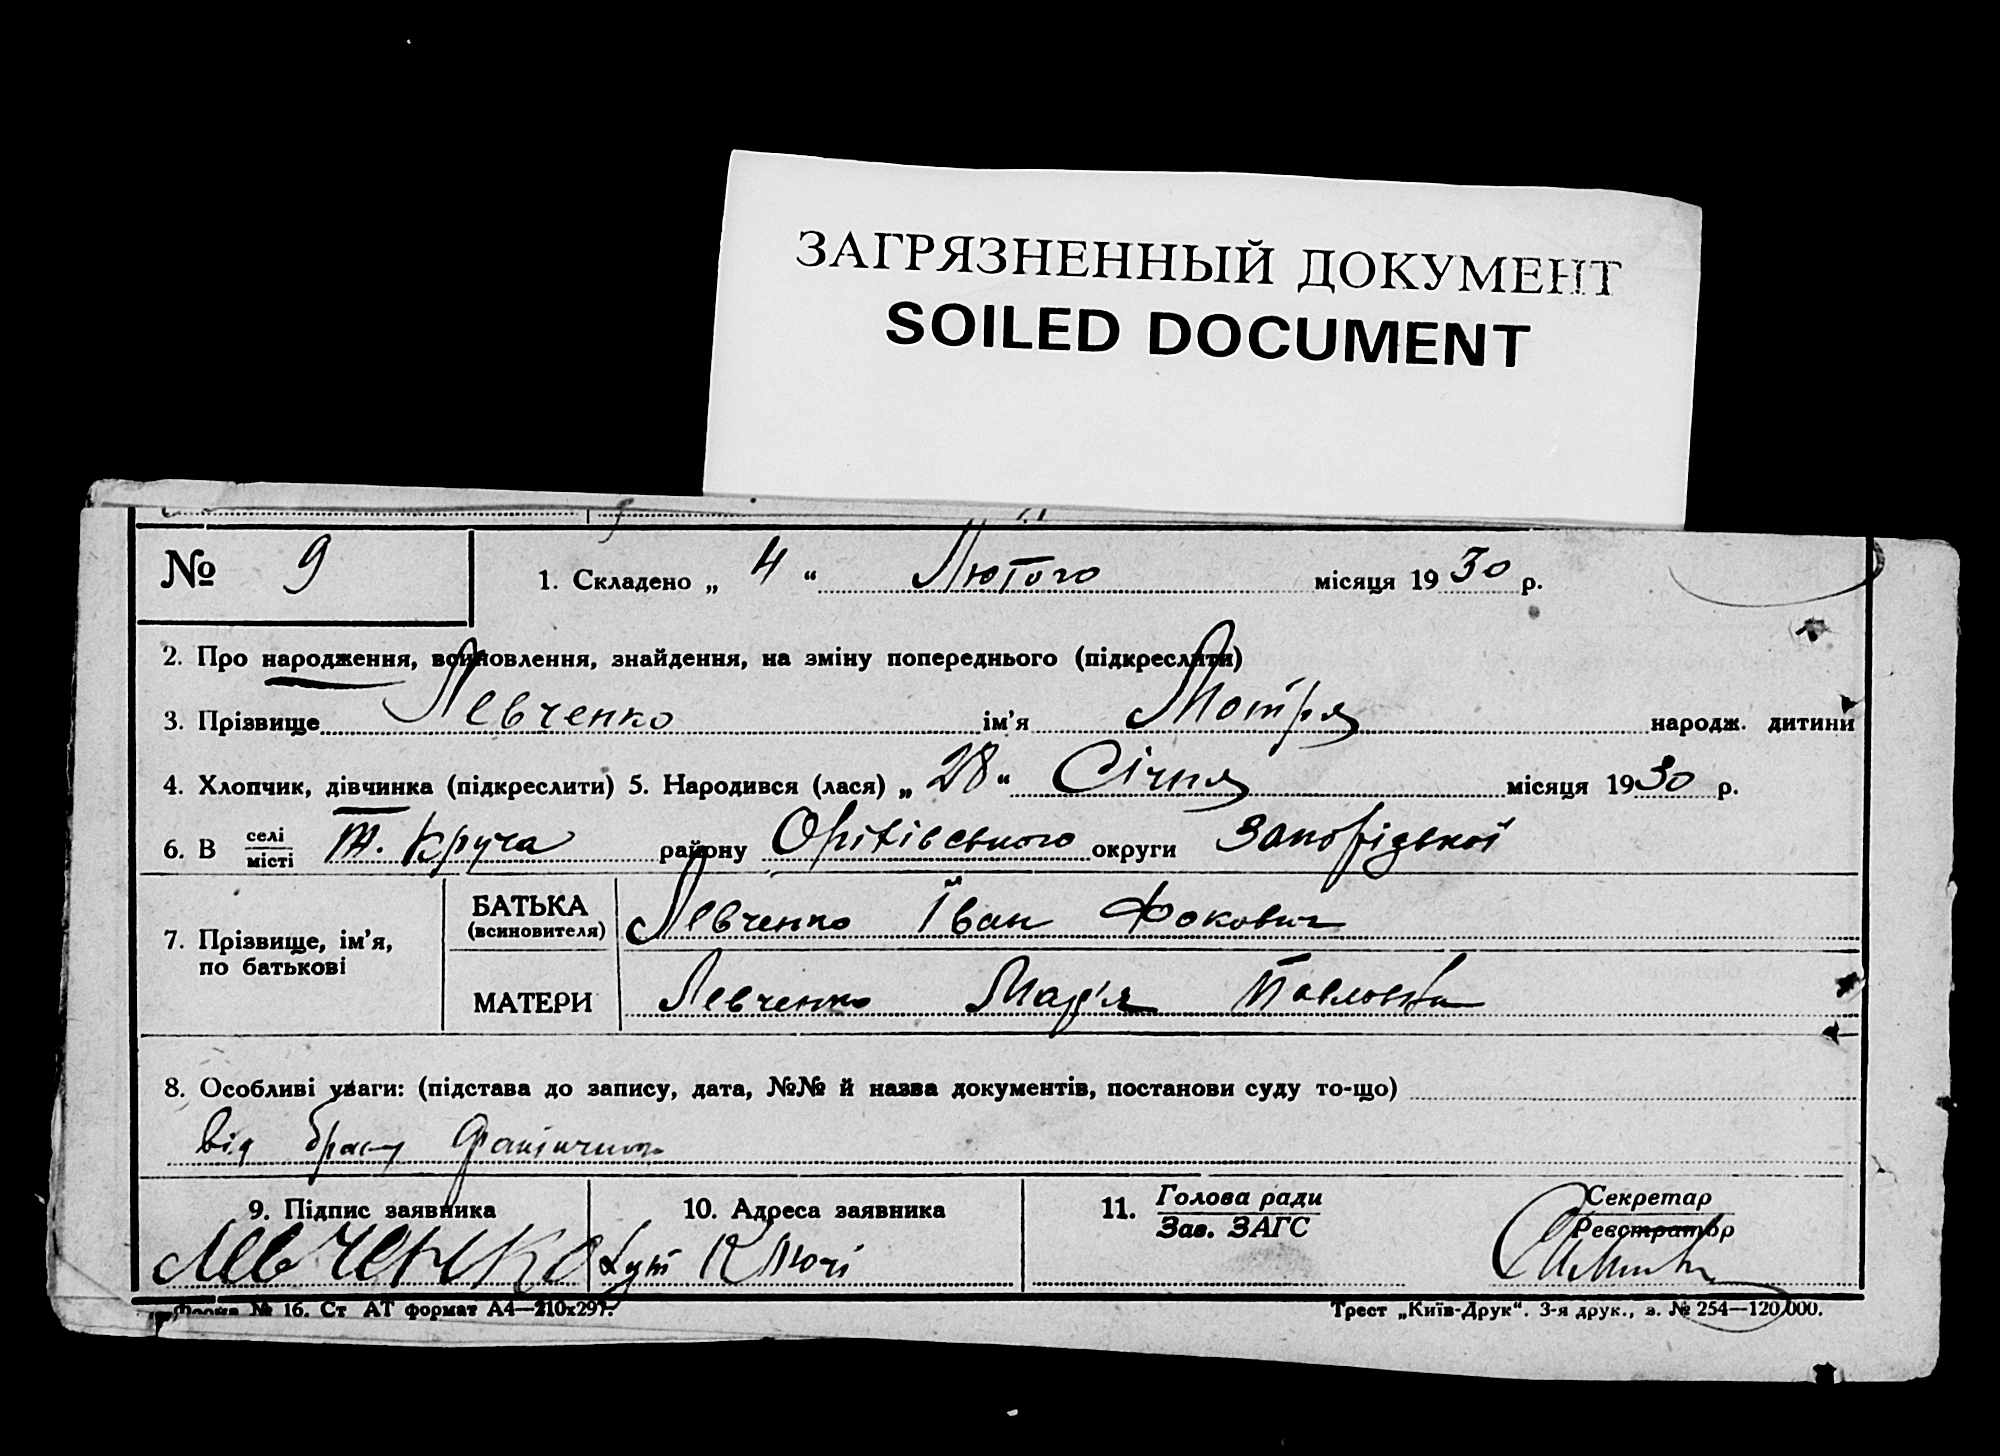 ЗАГРЯЗНЕННЫЙ ДОКУМЕНТ
SOILED DOCUMENT
№ 9
1. Складено „ 4 “ Лютого місяця 1930 р.
2. Про народження, всиновлення, знайдення, на зміну попереднього (підкреслити)
3. Прізвище Левченко ім’я Мотря народж. дитини
4. Хлопчик, дівчинка (підкреслити) 5. Народився (лася) „ 28 “ Січня місяця 1930 р.
6. В селі / місті Круча району Оріхівського округи Запорізької
7. Прізвище, ім’я, по батькові
БАТЬКА (всиновителя) Левченко Іван Фокович
МАТЕРИ Левченко Мар'я Павловна
8. Особливі уваги: (підстава до запису, дата, №№ й назва документів, постанови суду то-що)
від браку
9. Підпис заявника
Левченко
10. Адреса заявника
Хут Ключі
11. Голова ради
Зав. ЗАГС
Секретар
Реєстратор
Форма № 16. Ст АТ формат А4—210х297.
Трест „Київ-Друк“. 3-я друк., з. № 254—120,000.